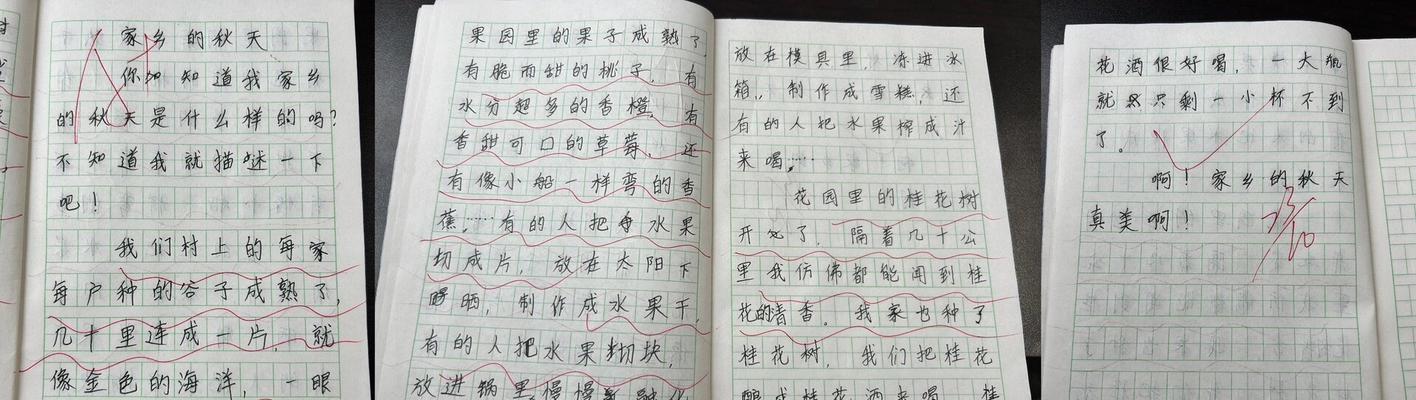 家乡的秋天
你知道我家乡
的秋天是什么样的吗?
不知道我就描述一下
吧!
我们村上的每家
每户种的谷子成熟了,
几十里连成一片,就
像金色的海洋,一眼
果园里的果子成熟了,
有脆而甜的桃子,有
水分超多的香橙,有
香甜可口的草莓,还
有像小船一样弯的香
蕉,……有的人把水果
切成片,放在太阳下
晒,制作成水果干,
有的人把水果切块,
放进锅里慢慢
放在模具里,冻进冰
箱,制作成雪糕,还
有的人把水果榨成汁
来喝……
花园里的桂花树
开了,隔着几十公
里我仿佛都能闻到桂
花的清香。我家也种了
桂花树,我们把桂花
酿成桂花酒来喝,桂
花酒很好喝,一大瓶
就只剩一小杯不到
了。
啊!家乡的秋天
真美啊!